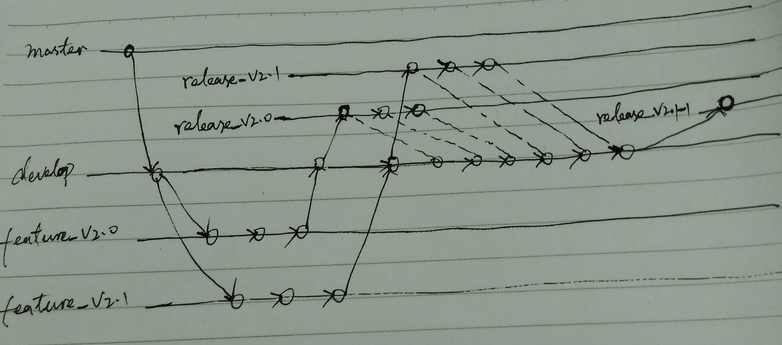 master
release_V2.1
release_V2.0
release_V2.1-1
develop
feature_V2.0
feature_V2.1